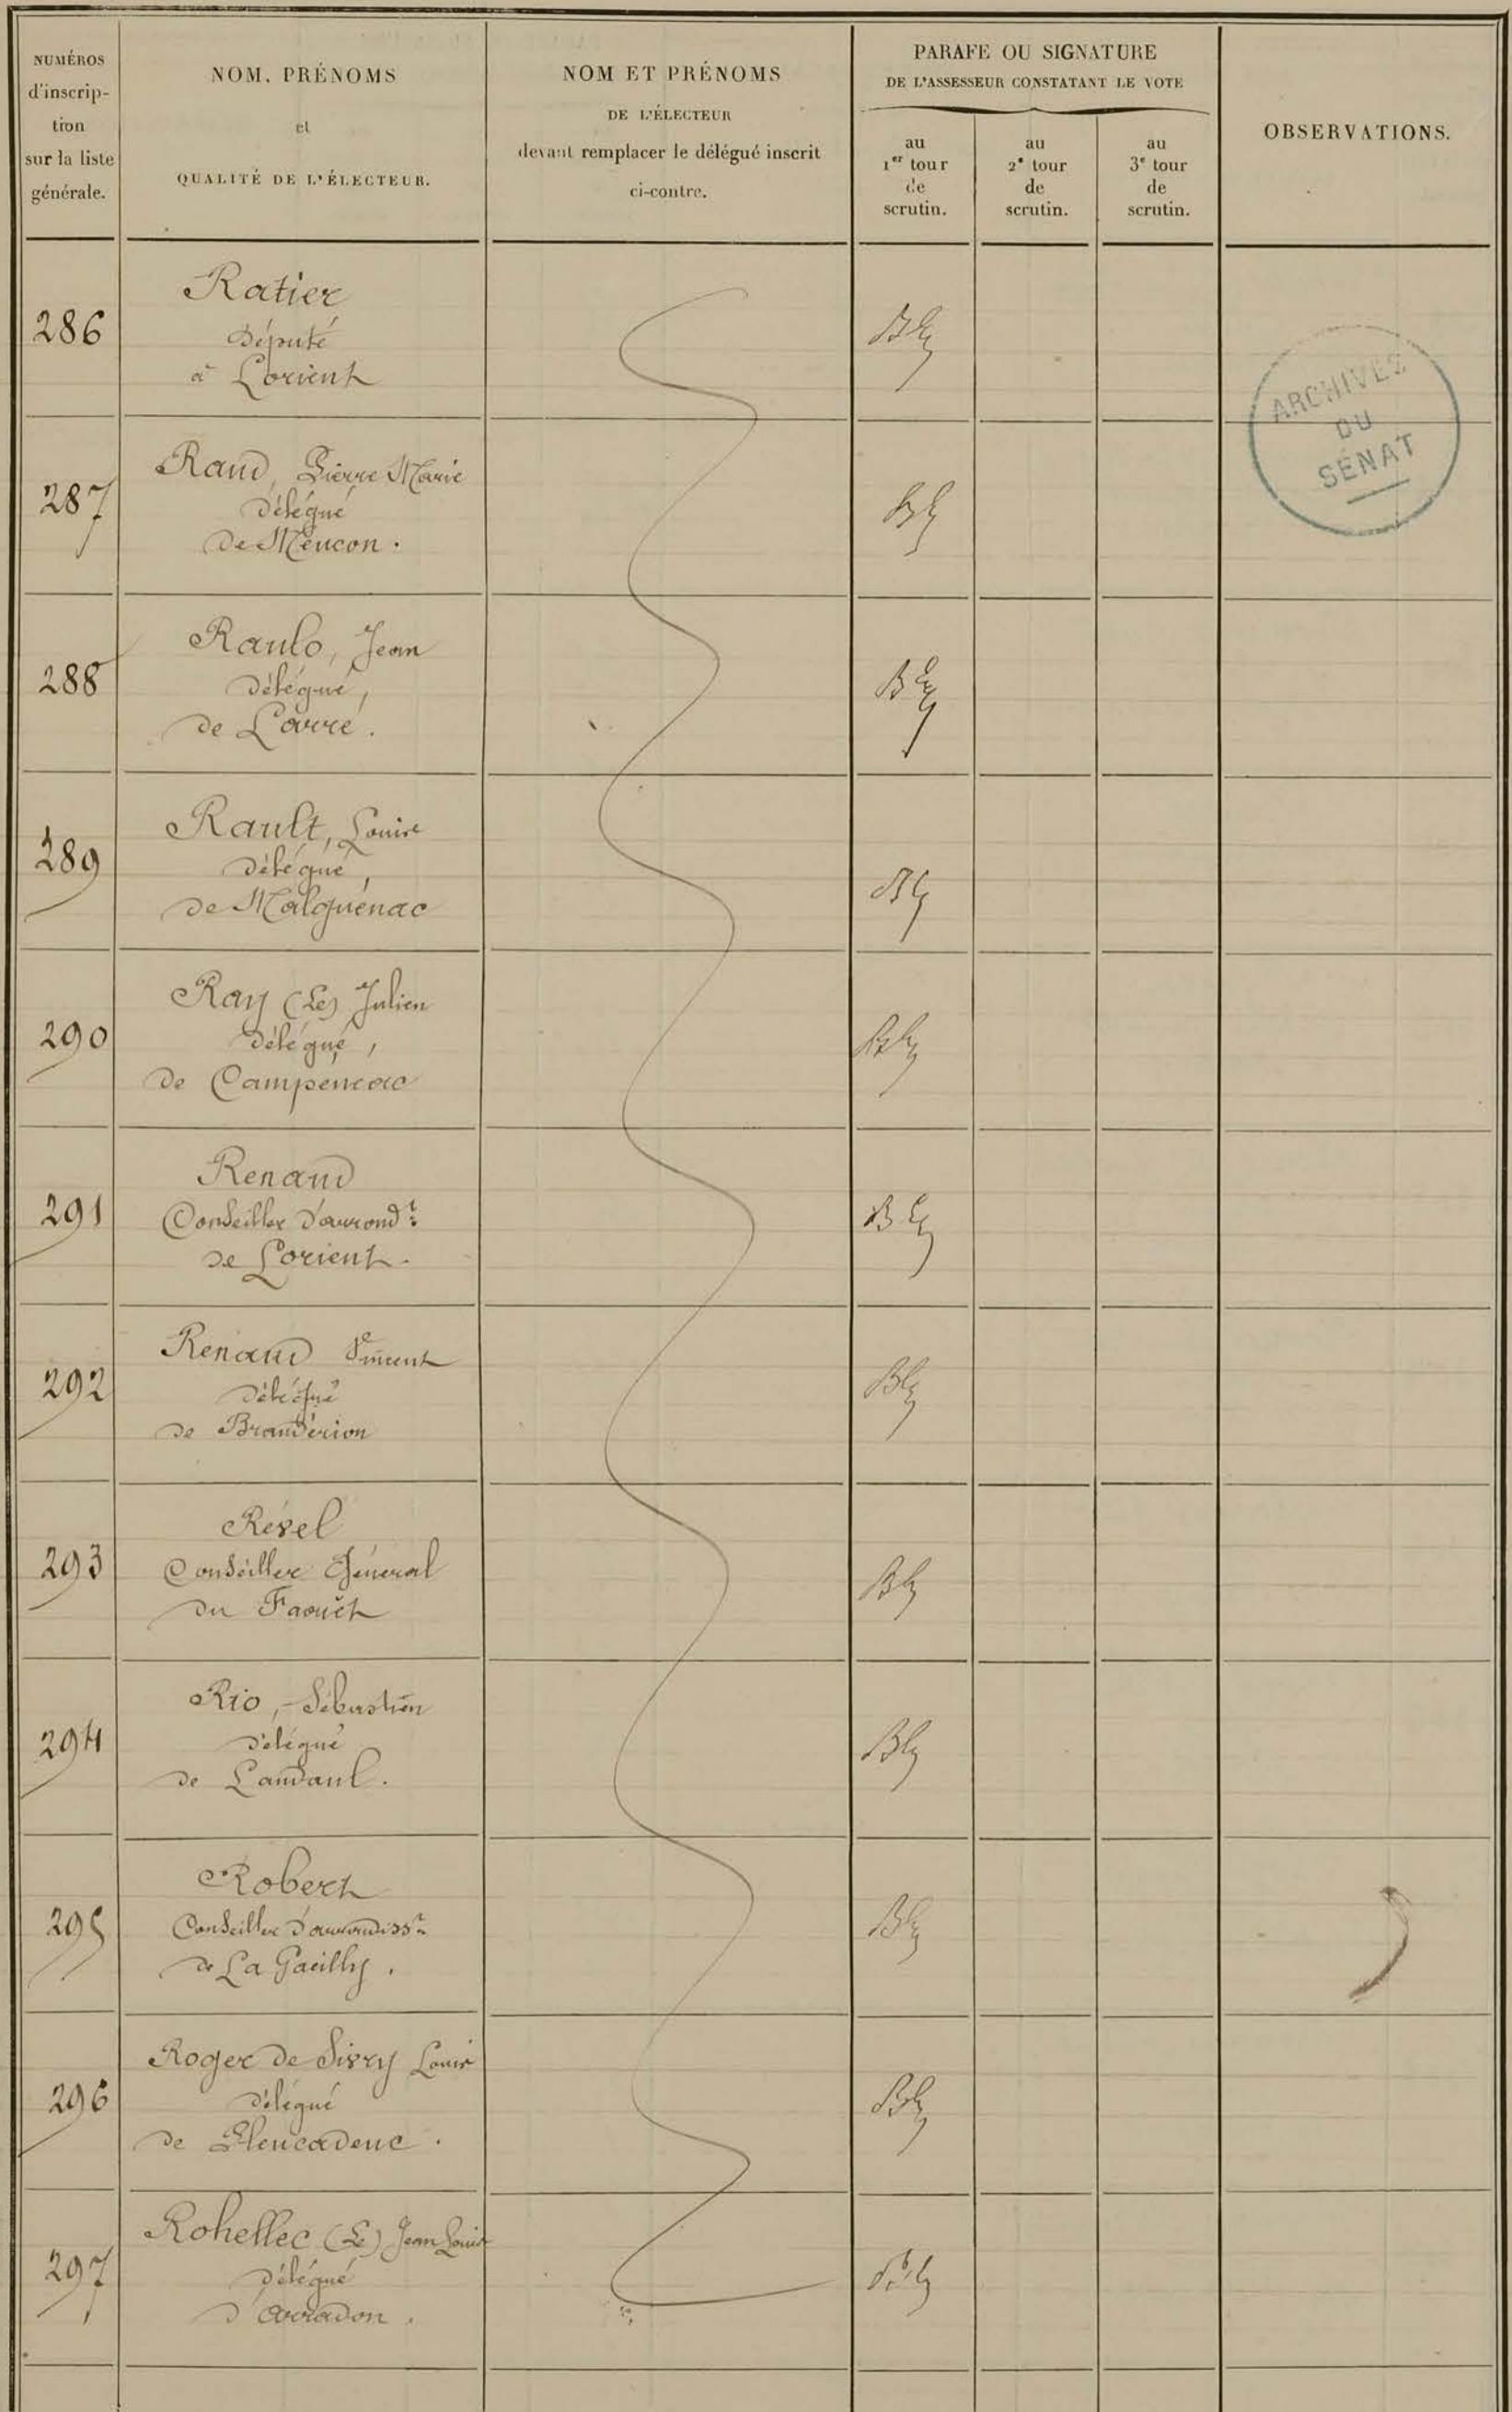 NUMÉROS
d'inscrip-
tion
sur la liste
générale.
NOM, PRÉNOMS
et
QUALITÉ DE L'ÉLECTEUR.
NOM ET PRÉNOMS
DE L'ÉLECTEUR
devant remplacer le délégué inscrit
ci-contre.
PARAFE OU SIGNATURE
DE L'ASSESSEUR CONSTATANT LE VOTE
au
1er tour
de
scrutin.
au
2e tour
de
scrutin.
au
3e tour
de
scrutin.
OBSERVATIONS.
286
Ratier
Député
à Lorient
ARCHIVES
DU
SÉNAT
287
Raud, Pierre Marie
Délégué
de Meucon.
288
Raulo, Jean
Délégué,
de Larré.
289
Rault, Louis
Délégué,
de Malguénac
290
Ray (Le) Julien
Délégué,
de Campénéac
291
Renaud
Conseiller d'arrondt
de Lorient.
292
Renaud Vincent
Délégué
de Brandérion
293
Revel
Conseiller Général
du Faouët
294
Rio, Sébastien
Délégué
de Landaul.
295
Robert
Conseiller d'arrondisst
de La Gacilly.
296
Roger de Sivry Louis
Délégué
de Pleucadeuc.
297
Rohellec (Le) Jean Louis
Délégué
d'Arradon.